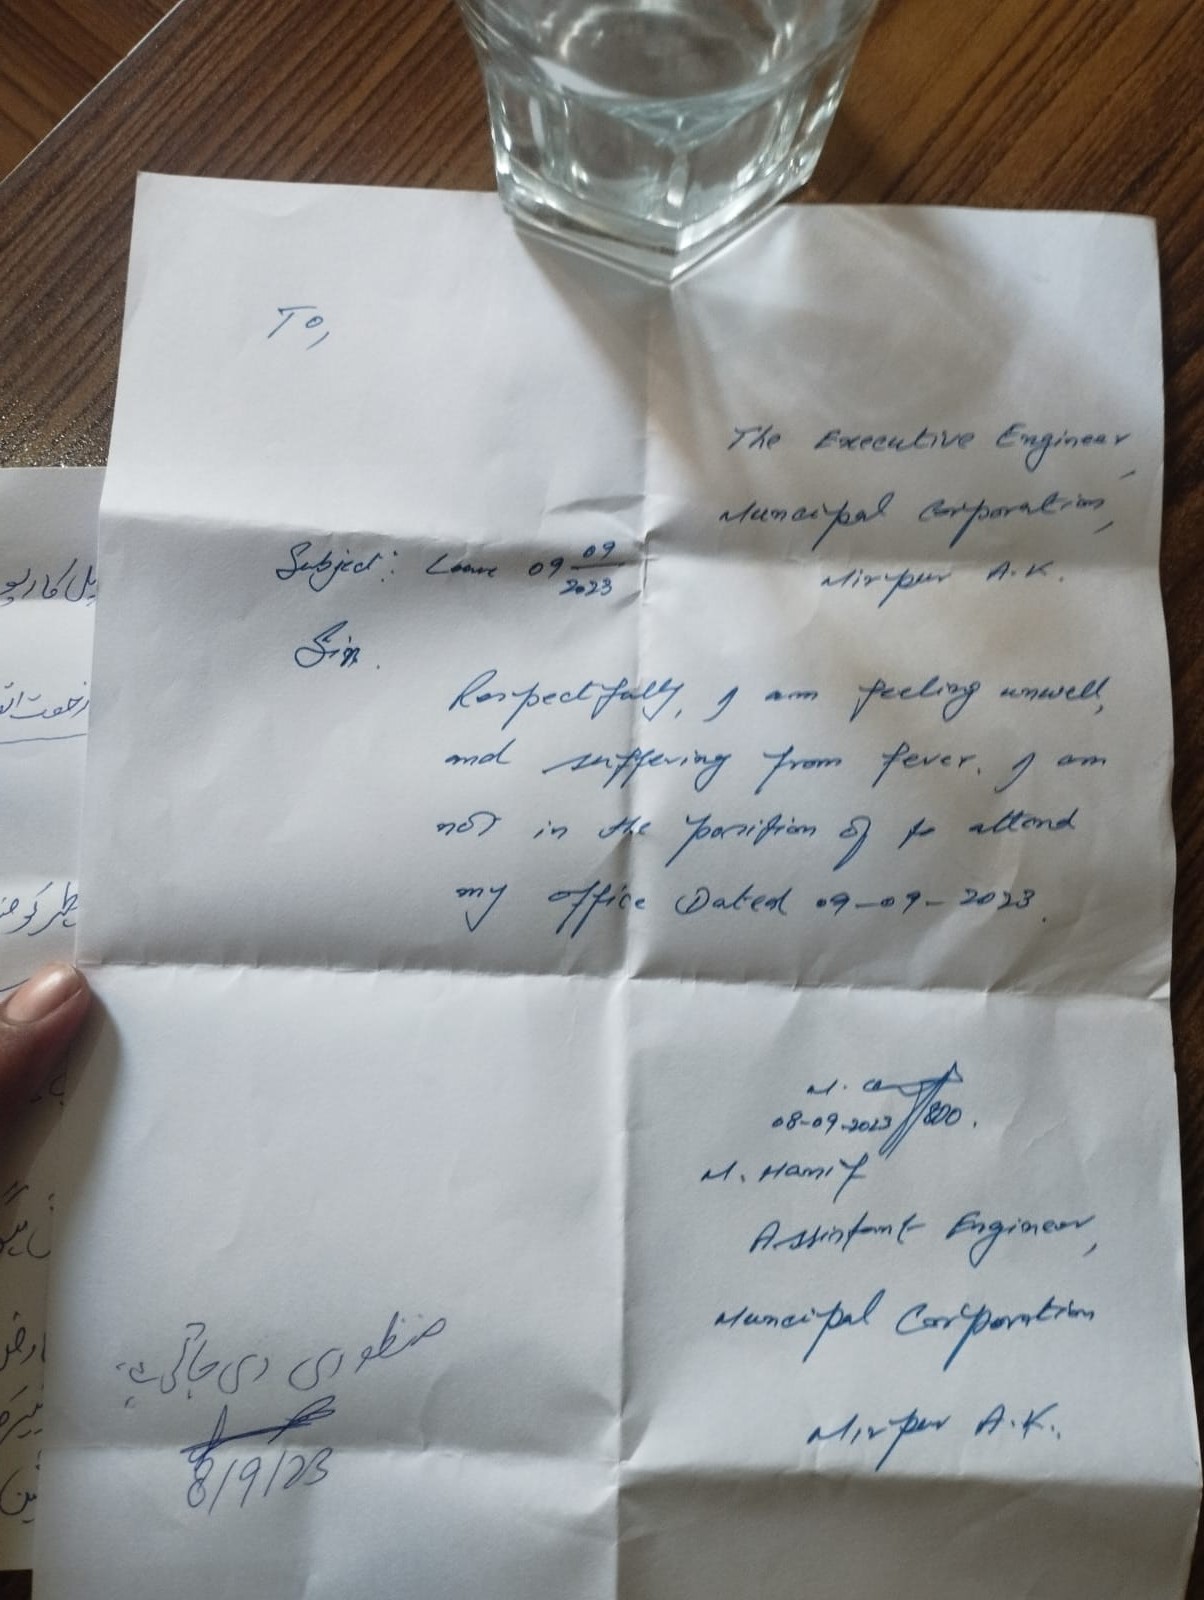 To,
The Executive Engineer,
Muncipal Corporation,
Mirpur A.K.
Subject: Leave 09 09/2023
Sir.
Respectfully, I am feeling unwell,
and suffering from fever. I am
not in the position of to attend
my office Dated 09-09-2023.
M.
08-09-2023
M. Hanif
Assistant Engineer,
Muncipal Corporation
Mirpur A.K.
منظوری دی جاتی ہے
8/9/23